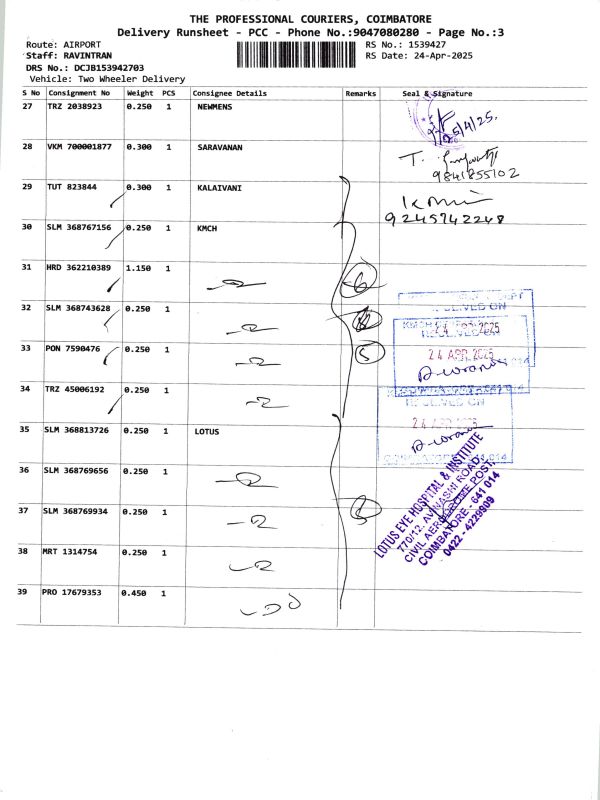 THE PROFESSIONAL COURIERS, COIMBATORE
Delivery Runsheet - PCC - Phone No.:9047080280 - Page No.:3
Route: AIRPORT RS No.: 1539427
Staff: RAVINTRAN RS Date: 24-Apr-2025
DRS No.: DCJB153942703
Vehicle: Two Wheeler Delivery
S No Consignment No Weight PCS Consignee Details Remarks Seal & Signature
27 TRZ 2038923 0.250 1 NEWMENS
25/4/25.
28 VKM 700001877 0.300 1 SARAVANAN
T.
9841855102
29 TUT 823844 0.300 1 KALAIVANI
9245742248
30 SLM 368767156 0.250 1 KMCH
31 HRD 362210389 1.150 1
32 SLM 368743628 0.250 1
RECEIVED ON
24 APR 2025
33 PON 7590476 0.250 1 5
24 APR 2025
34 TRZ 45006192 0.250 1
RECEIVED ON
35 SLM 368813726 0.250 1 LOTUS
36 SLM 368769656 0.250 1
37 SLM 368769934 0.250 1
LOTUS EYE HOSPITAL & INSTITUTE
770/12, AVINASHI ROAD,
CIVIL AERODROME POST,
COIMBATORE - 641 014
0422 - 4229909
38 MRT 1314754 0.250 1
39 PRO 17679353 0.450 1